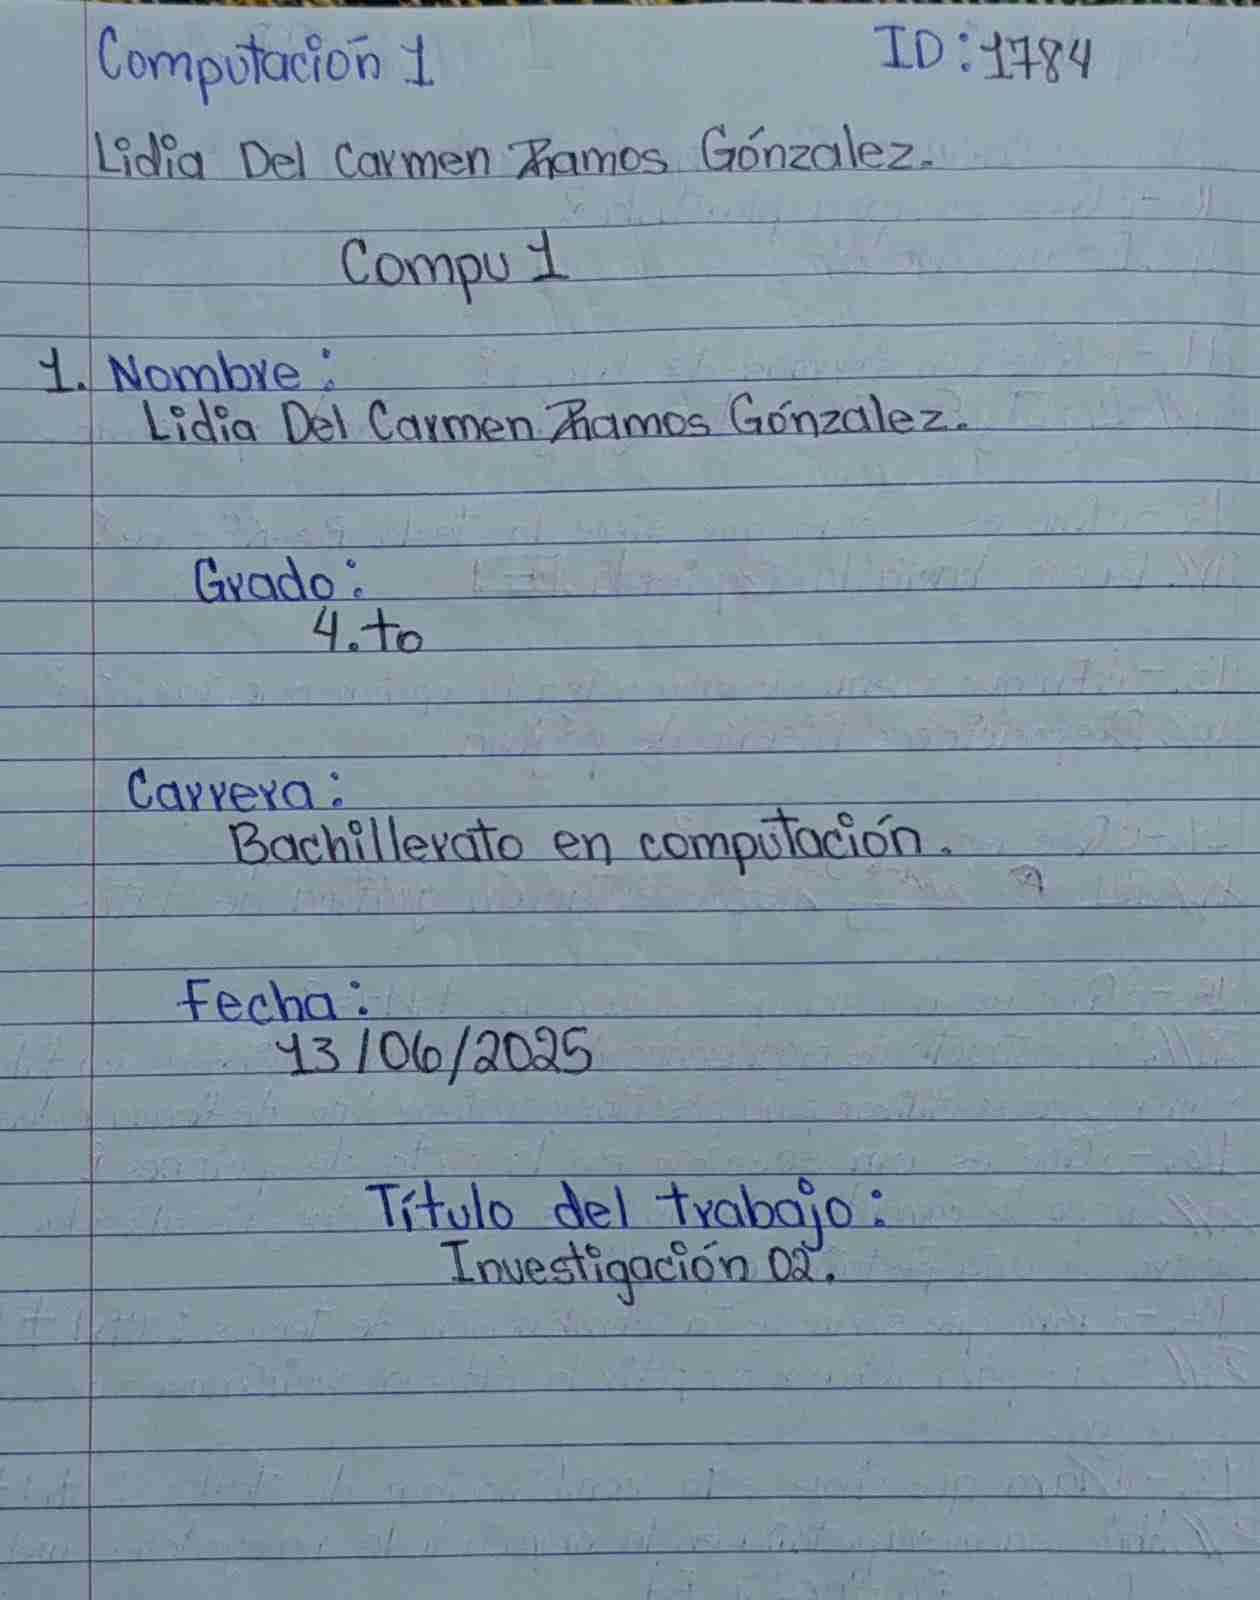 Computación 1 ID: 1784
Lidia Del Carmen Ramos Gónzalez.
Compu 1
1. Nombre:
Lidia Del Carmen Ramos Gónzalez.
Grado:
4.to
Carrera:
Bachillerato en computación.
Fecha:
13/06/2025
Título del trabajo:
Investigación 02.